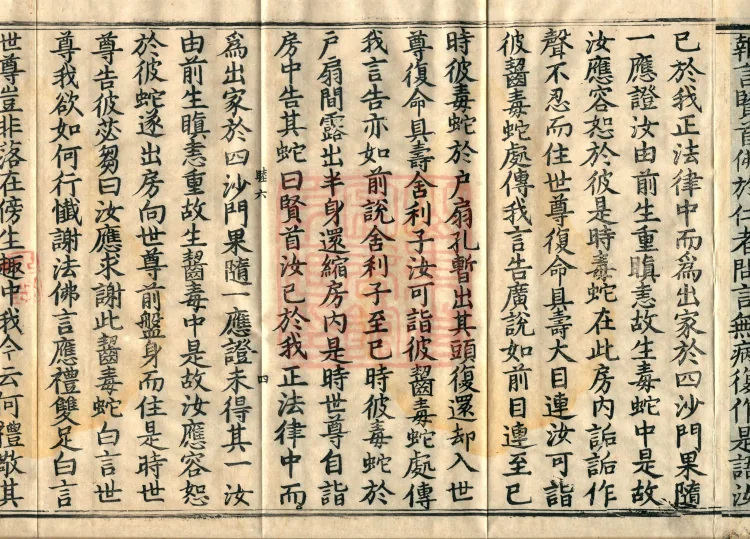 報言賢首佛於仁者問言無病復作是語汝
已於我正法律中而爲出家於四沙門果隨
一應證汝由前生重瞋恚故生毒蛇中是故
汝應容恕於彼是時毒蛇在此房內詬詬作
聲不忍而住世尊復命具壽大目連汝可詣
彼齧毒蛇處傳我言告廣說如前目連至已
時彼毒蛇於户扇孔暫出其頭復還却入世
尊復命具壽舍利子汝可詣彼齧毒蛇處傳
我言告亦如前說舍利子至已時彼毒蛇於
户扇間露出半身還縮房內是時世尊自詣
房中告其蛇曰賢首汝已於我正法律中而
睦六 四
爲出家於四沙門果隨一應證未得其一汝
由前生瞋恚重故生齧毒中是故汝應容恕
於彼蛇遂出房向世尊前盤身而住是時世
尊告彼苾芻曰汝應求謝此齧毒蛇白言世
尊我欲如何行懺謝法佛言應禮雙足白言
世尊豈非落在傍生趣中我今云何禮敬其